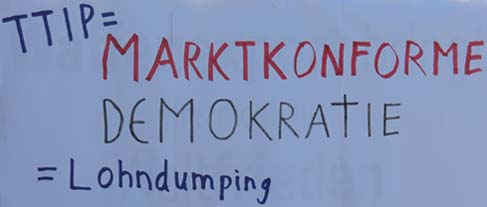 TTIP=
MARKTKONFORME
DEMOKRATIE
= Lohndumping